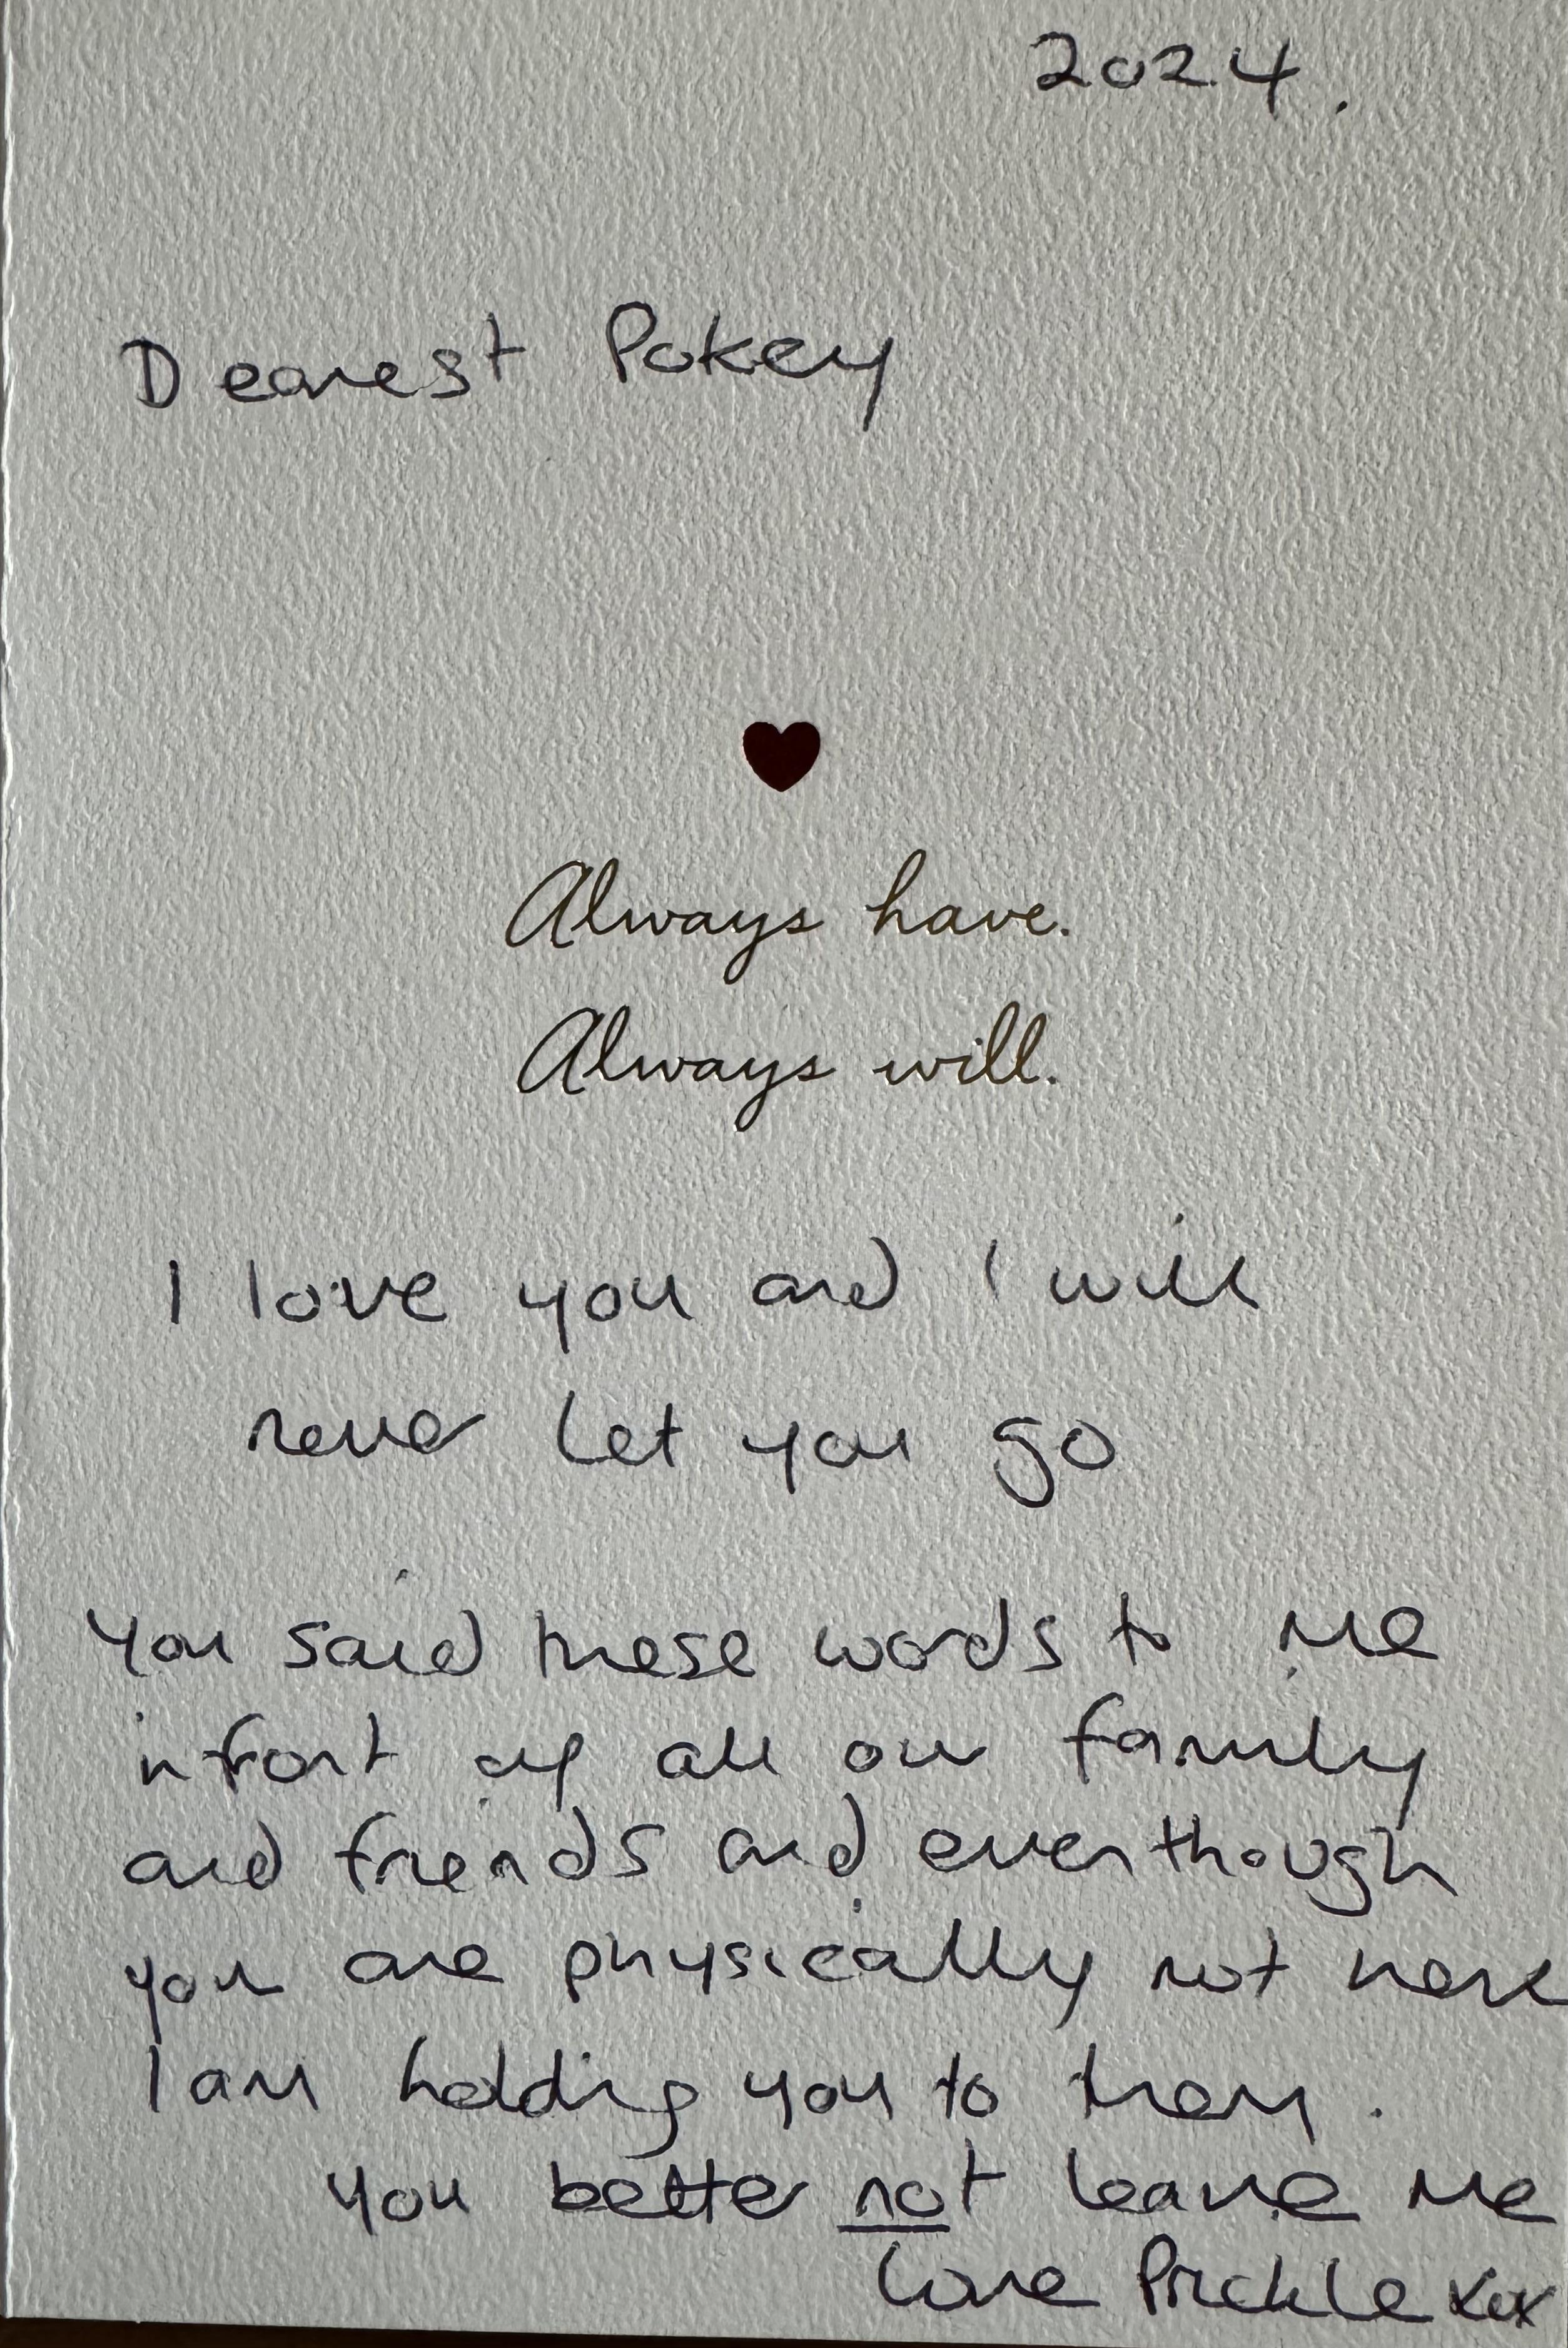 2024.
Dearest Pokey
Always have.
Always will.
I love you and I will
never let you go
You said these words to me
infront of all our family
and friends and eventhough
you are physically not here
I am holding you to them.
You better not leave me
Love Prickle xox